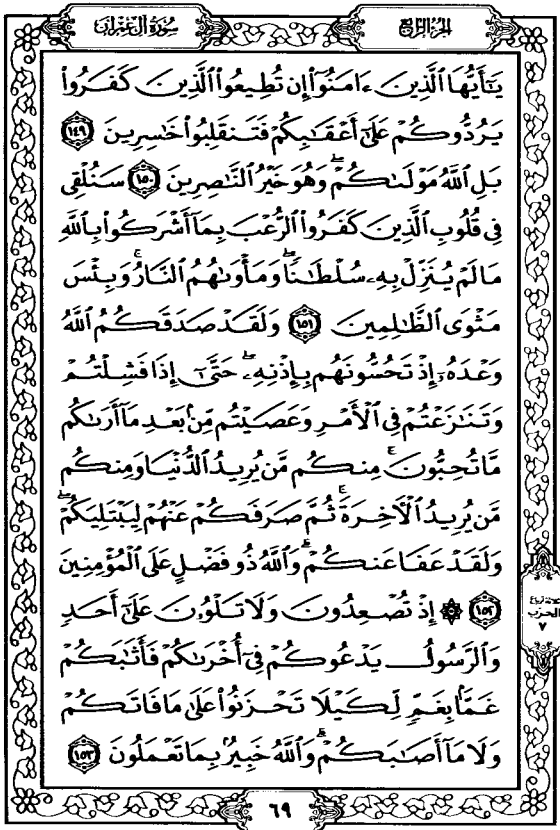 الجزء الرابع
سورة آل عمران
يَٰٓأَيُّهَا ٱلَّذِينَ ءَامَنُوٓا۟ إِن تُطِيعُوا۟ ٱلَّذِينَ كَفَرُوا۟
يَرُدُّوكُمْ عَلَىٰٓ أَعْقَٰبِكُمْ فَتَنقَلِبُوا۟ خَٰسِرِينَ ١٤٩
بَلِ ٱللَّهُ مَوْلَىٰكُمْ ۖ وَهُوَ خَيْرُ ٱلنَّٰصِرِينَ ١٥٠ سَنُلْقِى
فِى قُلُوبِ ٱلَّذِينَ كَفَرُوا۟ ٱلرُّعْبَ بِمَآ أَشْرَكُوا۟ بِٱللَّهِ
مَا لَمْ يُنَزِّلْ بِهِۦ سُلْطَٰنًا ۖ وَمَأْوَىٰهُمُ ٱلنَّارُ ۚ وَبِئْسَ
مَثْوَى ٱلظَّٰلِمِينَ ١٥١ وَلَقَدْ صَدَقَكُمُ ٱللَّهُ
وَعْدَهُۥٓ إِذْ تَحُسُّونَهُم بِإِذْنِهِۦ ۖ حَتَّىٰٓ إِذَا فَشِلْتُمْ
وَتَنَٰزَعْتُمْ فِى ٱلْأَمْرِ وَعَصَيْتُم مِّنۢ بَعْدِ مَآ أَرَىٰكُم
مَّا تُحِبُّونَ ۚ مِنكُم مَّن يُرِيدُ ٱلدُّنْيَا وَمِنكُم
مَّن يُرِيدُ ٱلْأَخِرَةَ ۚ ثُمَّ صَرَفَكُمْ عَنْهُمْ لِيَبْتَلِيَكُمْ ۖ
وَلَقَدْ عَفَا عَنكُمْ ۗ وَٱللَّهُ ذُو فَضْلٍ عَلَى ٱلْمُؤْمِنِينَ
١٥٢ ۞ إِذْ تُصْعِدُونَ وَلَا تَلْوُۥنَ عَلَىٰٓ أَحَدٍ
وَٱلرَّسُولُ يَدْعُوكُمْ فِىٓ أُخْرَىٰكُمْ فَأَثَٰبَكُمْ
غَمًّۢا بِغَمٍّ لِّكَيْلَا تَحْزَنُوا۟ عَلَىٰ مَا فَاتَكُمْ
وَلَا مَآ أَصَٰبَكُمْ ۗ وَٱللَّهُ خَبِيرٌۢ بِمَا تَعْمَلُونَ ١٥٣
الحزب
٧
٦٩